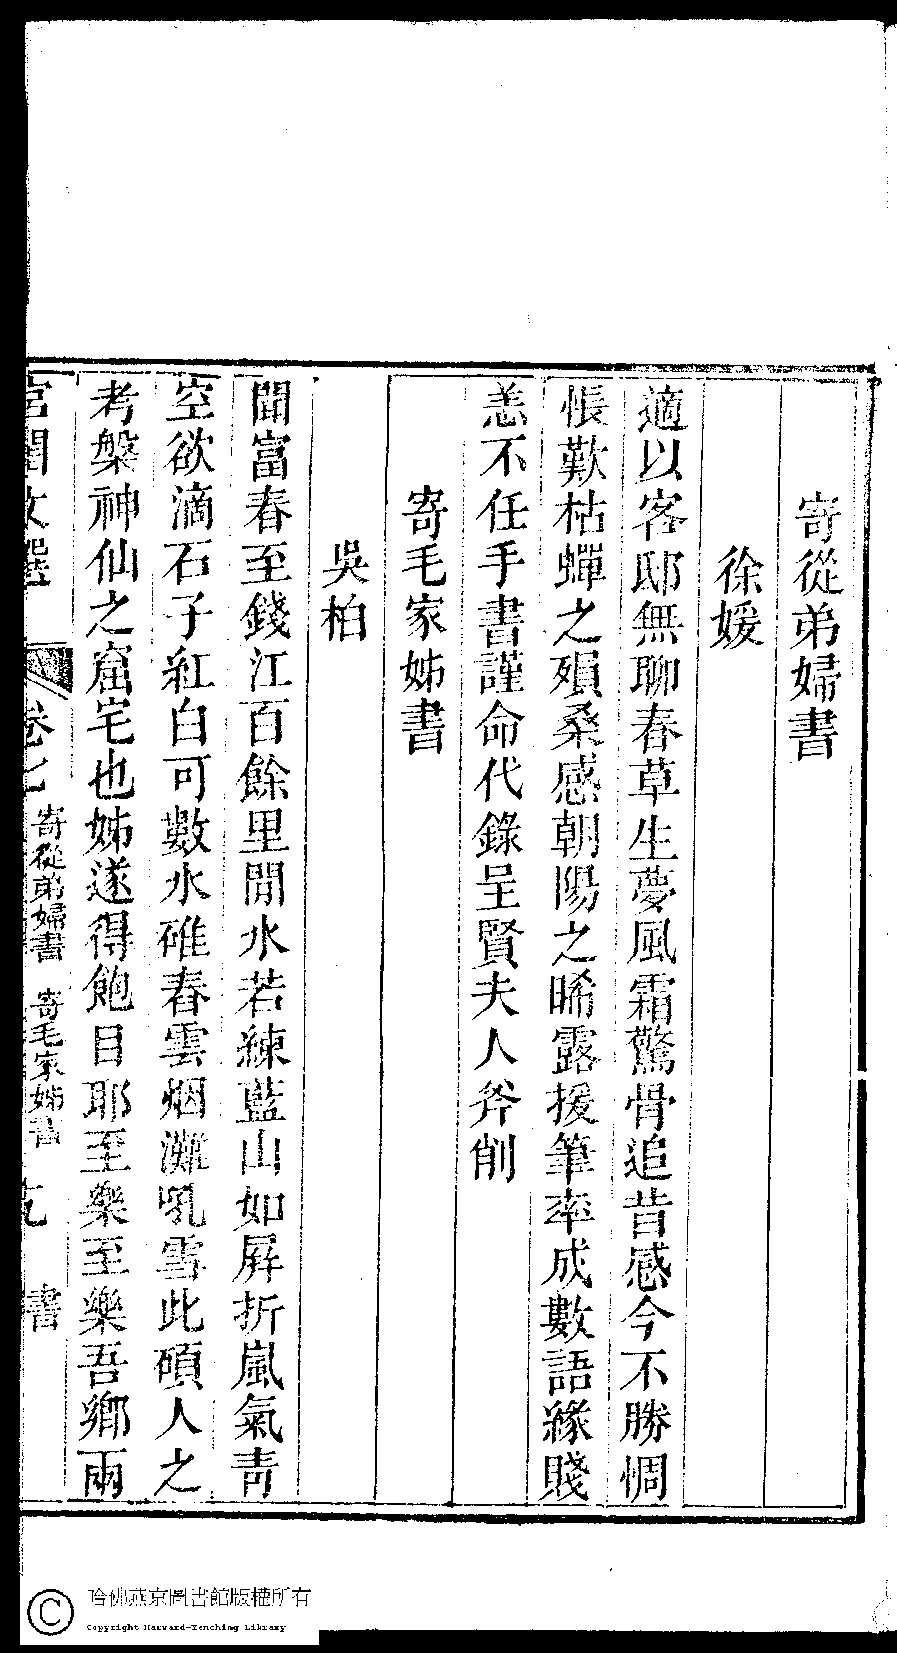 寄從弟婦書
徐媛
適以客邸無聊春草生夢風霜驚骨追昔感今不勝惆
悵歎枯蟬之殞桑感朝陽之晞露援筆率成數語緣賤
恙不任手書謹命代錄呈賢夫人斧削
寄毛家姊書
吳柏
聞富春至錢江百餘里間水若練藍山如屏折嵐氣青
空欲滴石子紅白可數水碓舂雲烟灘吼雪此碩人之
考槃神仙之窟宅也姊遂得飽目耶至樂至樂吾鄉兩
宮閨文選 卷七 寄從弟婦書 寄毛家姊書 書
哈佛燕京圖書館版權所有
Copyright Harvard-Yenching Library